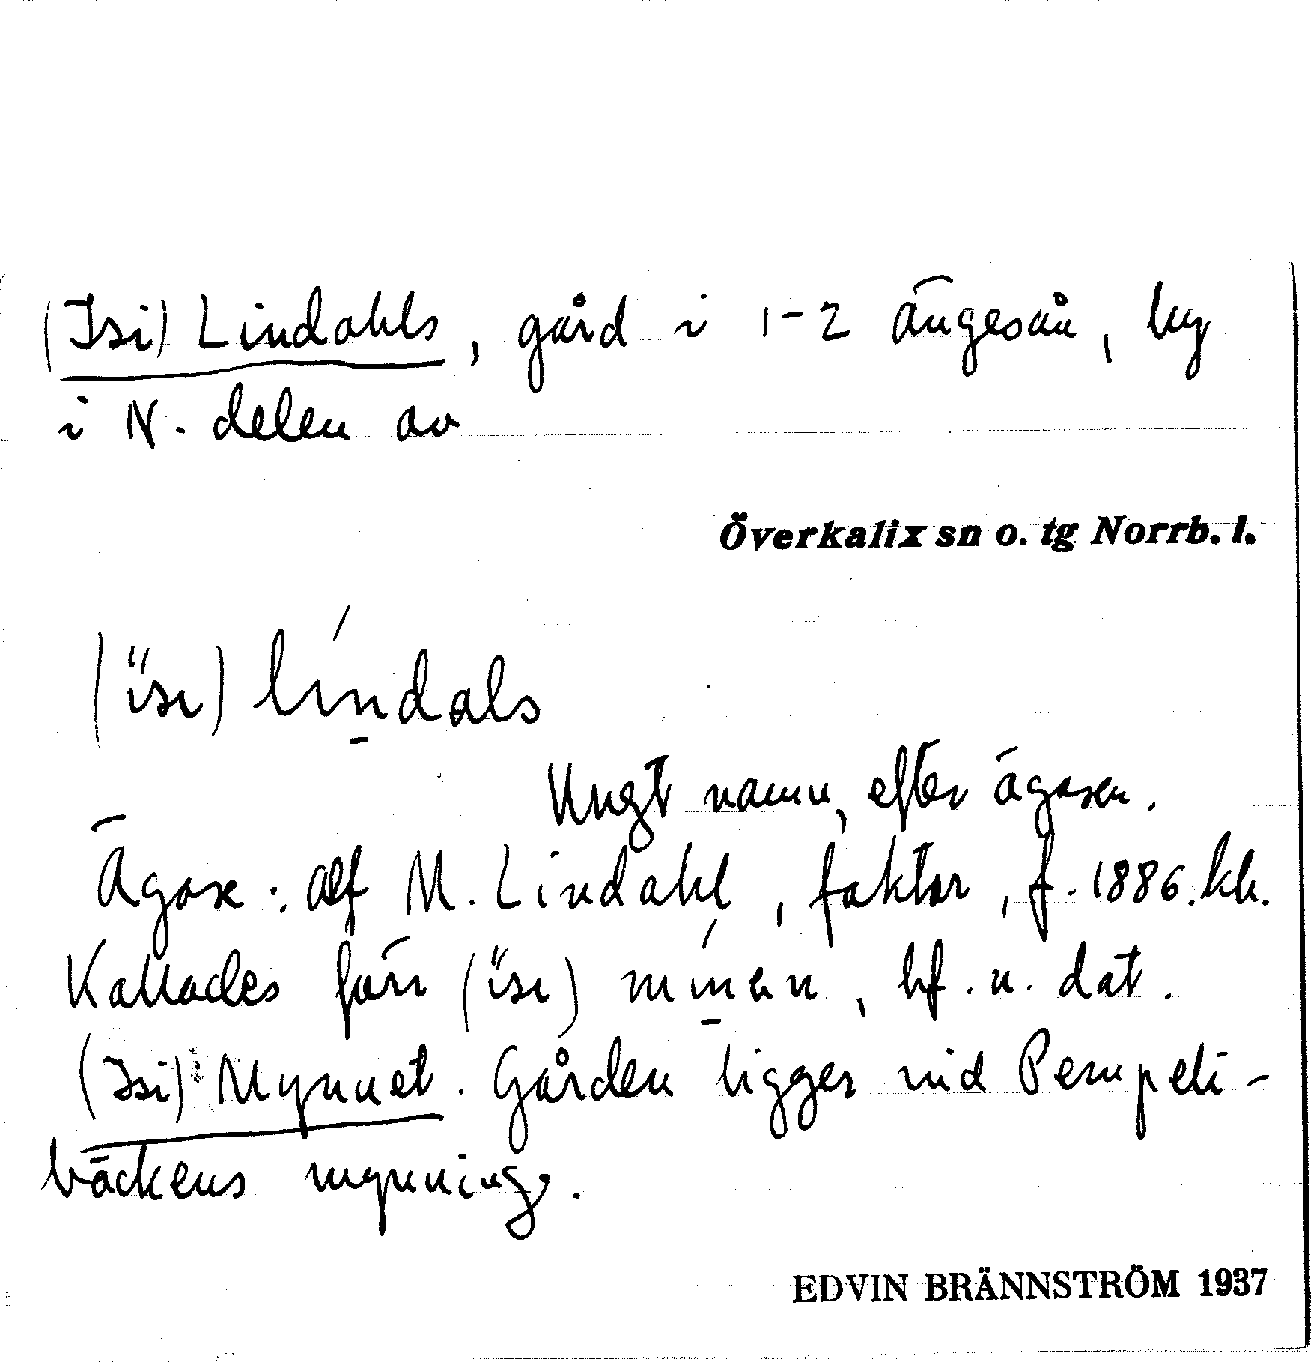 (Isi) Lindahls, gård i 1-2 Ängesån, by
i N. delen av
Överkalix sn o. tg Norrb. l.
(ìsı) líndals
Ungt namn, efter ägaren.
Ägare: Alf M. Lindahl, faktor, f. 1886. kk.
Kallades förr (ìsı) mínan, bf. n. dat.
(Isi) Mynnet. Gården ligger vid Pempeli-
bäckens mynning.
EDVIN BRÄNNSTRÖM 1937